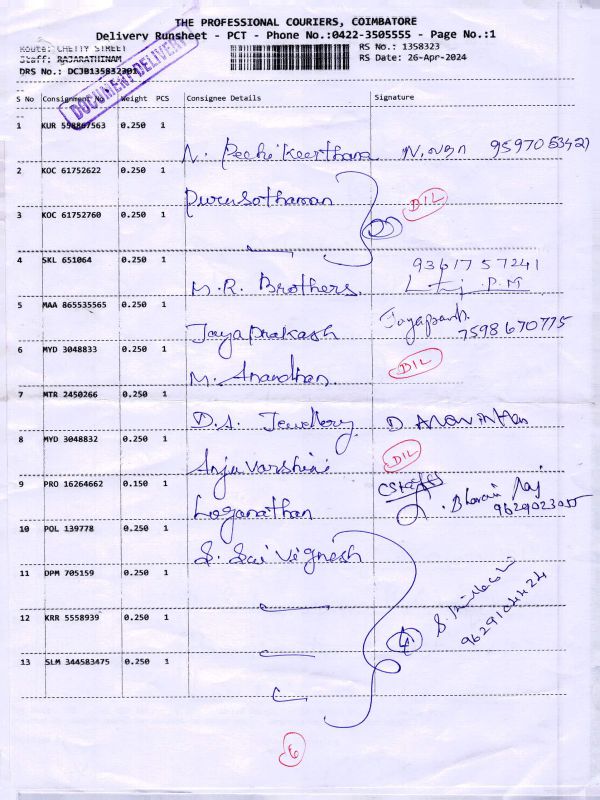 THE PROFESSIONAL COURIERS, COIMBATORE
Delivery Runsheet - PCT - Phone No.:0422-3505555 - Page No.:1
Route: CHETTY STREET RS No.: 1358323
Staff: RAJARATHINAM RS Date: 26-Apr-2024
DRS No.: DCJB135832301
DOCUMENT DELIVERY
S No Consignment No Weight PCS Consignee Details Signature
1 KUR 558867563 0.250 1
N. Pechi Keerthana 9597053421
2 KOC 61752622 0.250 1
Purusothaman DIL
3 KOC 61752760 0.250 1
4 SKL 651064 0.250 1 9361757241
M.R. Brothers P.M
5 MAA 865535565 0.250 1
Jayaprakash Jayaprakash 7598670775
6 MYD 3048833 0.250 1
M. Anandhan DIL
7 MTR 2450266 0.250 1
D.A. Jewellery D. Aravinthan
8 MYD 3048832 0.250 1
Anju Varshini DIL
9 PRO 16264662 0.150 1
Loganathan Bharani Raj
9629023055
10 POL 139778 0.250 1
S. Sai Vignesh
11 DPM 705159 0.250 1
12 KRR 5558939 0.250 1
13 SLM 344583475 0.250 1